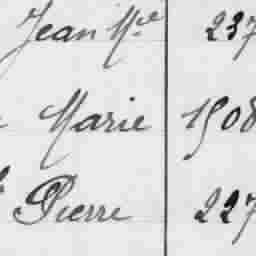 Jean Mce 237
Marie 1908
Pierre 227